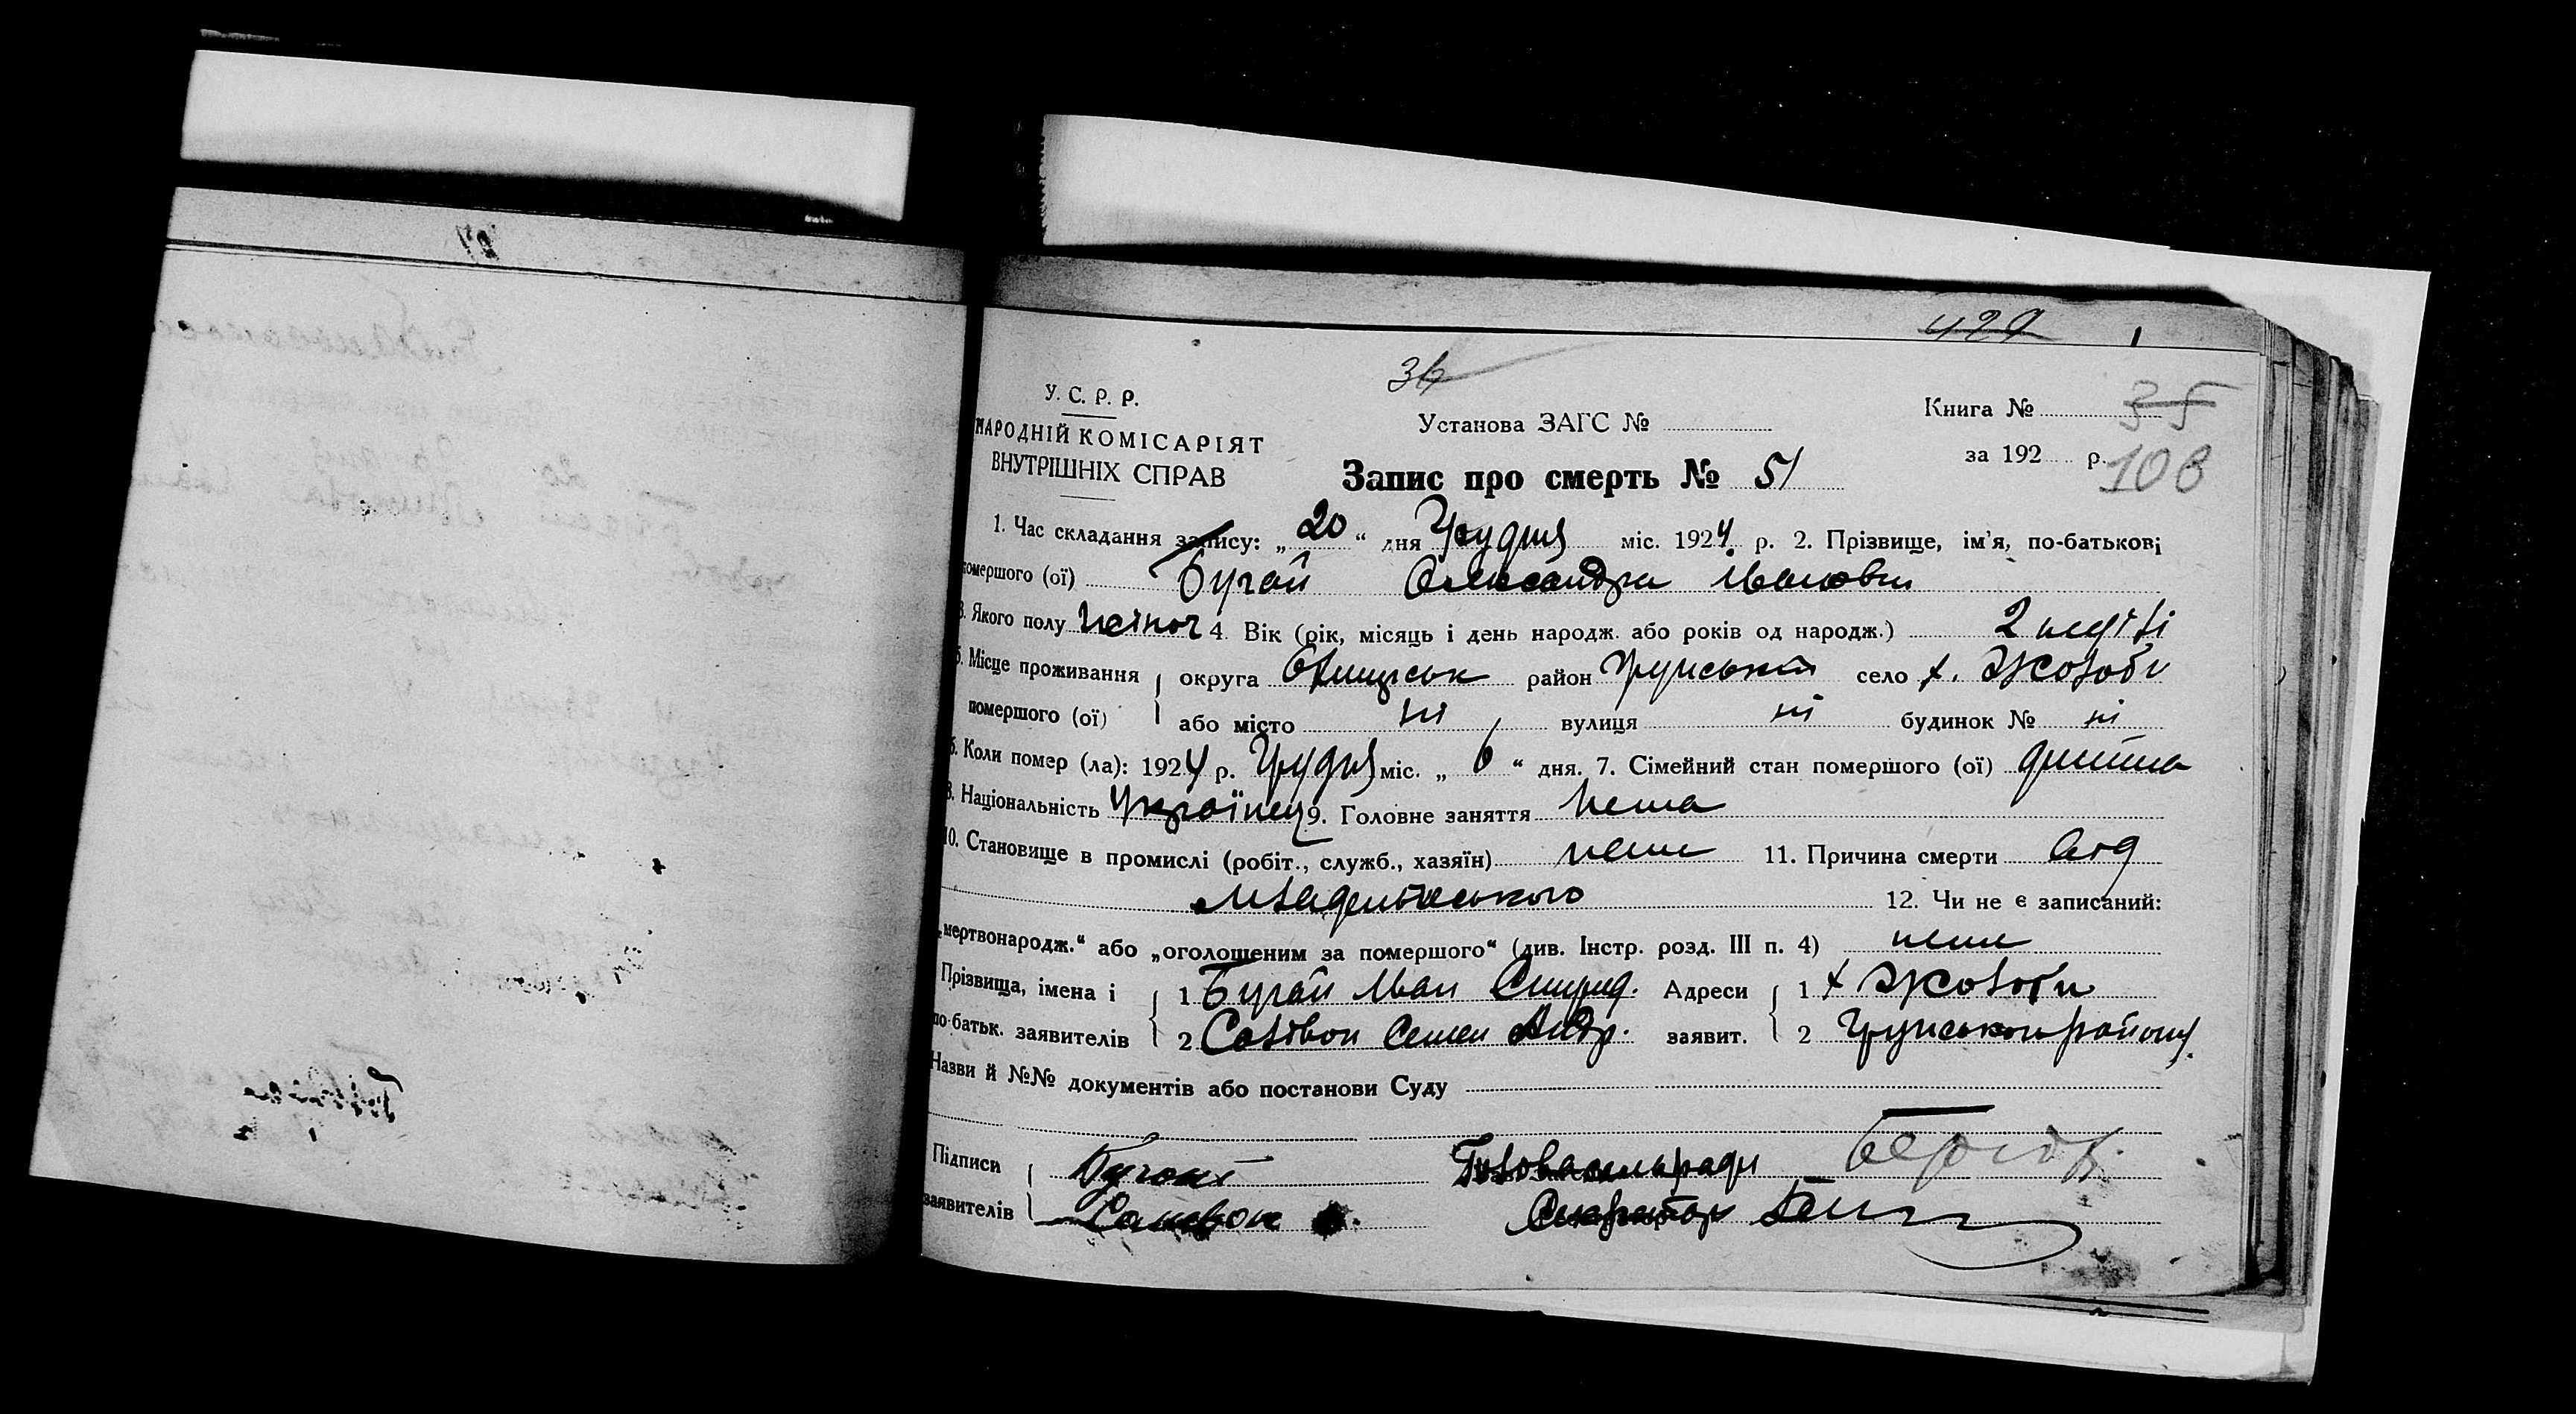 429
36
У. С. Р. Р.
НАРОДНІЙ КОМІСАРІЯТ
ВНУТРІШНІХ СПРАВ
Установа ЗАГС №
Книга № 35
за 192 р.
108
Запис про смерть № 51
1. Час складання запису: „ 20 “ дня Грудня міс. 1924 р. 2. Прізвище, ім'я, по-батькові
помершого (ої) Бугай Олександра Іванівни
3. Якого полу жіноч 4. Вік (рік, місяць і день народж. або років од народж.) 2 неділі
5. Місце проживання округа район Грунський село х. Жолоби
помершого (ої) або місто ні вулиця ні будинок № ні
6. Коли помер (ла): 1924 р. Грудня міс. „ 6 “ дня. 7. Сімейний стан помершого (ої) дитина
8. Національність Українец 9. Головне заняття нема
10. Становище в промислі (робіт., служб., хазяїн) нема 11. Причина смерти від
младенческого 12. Чи не є записаний:
„мертвонародж.“ або „оголошеним за помершого“ (див. Інстр. розд. III п. 4) нема
Прізвища, імена і 1 Бугай Іван Спирид. Адреси 1 х Жолоби
по-батьк. заявителів 2 Салівон Семен Андр. заявит. 2 Грунського району.
Назви й №№ документів або постанови Суду
Підписи Бугай Голова сільради
заявителів Саливон Секретар